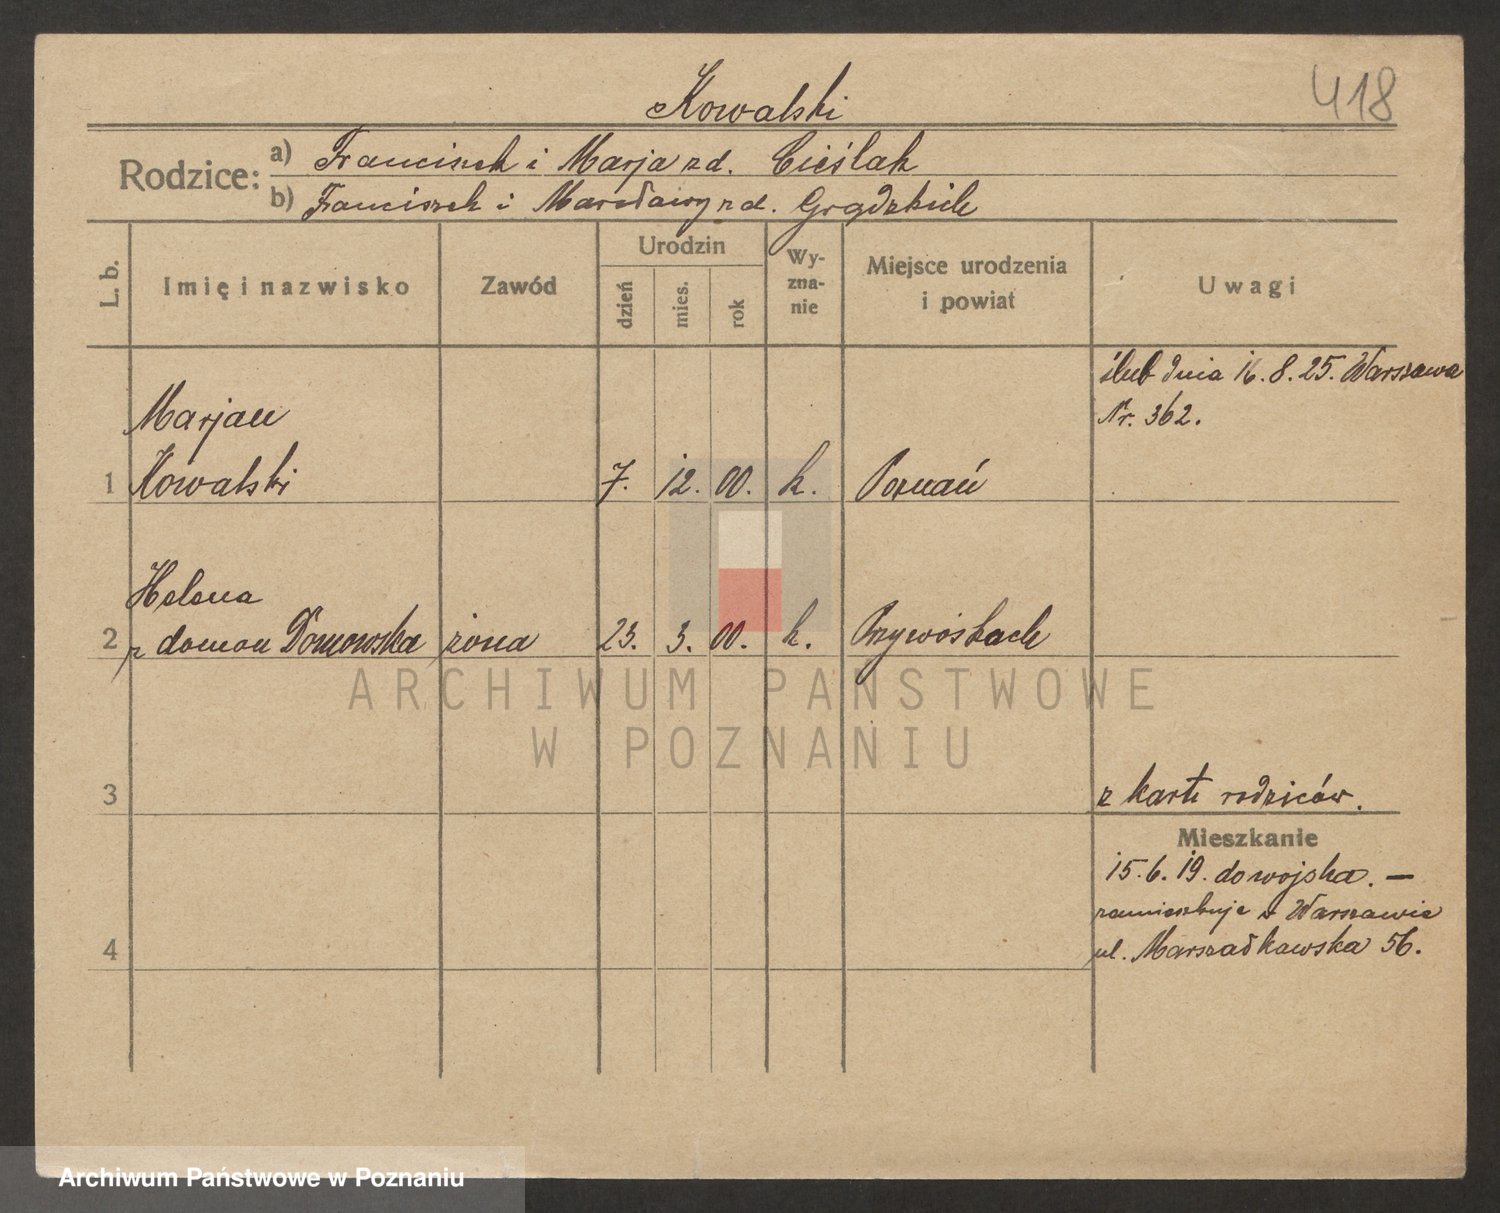 Kowalski
418
Rodzice:
a) Franciszek i Marja z d. Cieślak
b) Franciszek i z d.
L. b.
Imię i nazwisko
Zawód
Urodzin
dzień
mies.
rok
Wy-
zna-
nie
Miejsce urodzenia
i powiat
Uwagi
ślub dnia 16. 8. 25. Warszawa
Nr. 362.
Marjan
1 Kowalski 7. 12. 00. k. Poznań
Helena
2 z domou Domowska żona 23. 3. 00. k.
ARCHIWUM PAŃSTWOWE
W POZNANIU
3 z karti rodziców.
Mieszkanie
15. 6. 19. do wojska. —
zamieszkuje w Warszawie
4 ul. Marszałkowska 56.
Archiwum Państwowe w Poznaniu